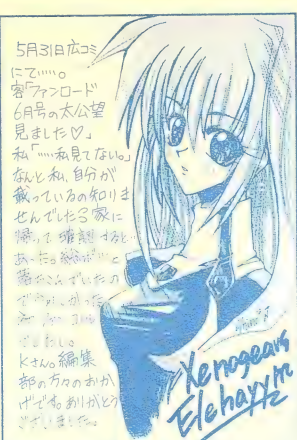 5月31日広コミ
にて……。
客「ファンロード
6月号の太公望
見ました♡」
私「……私見てない。」
なんと私、自分が
載っているの知りま
せんでした3家に
帰って確認すると
あった。
Kさん。編集
部の方々のおか
げです。ありがとう
ございました。
Xenogears
Elehayym